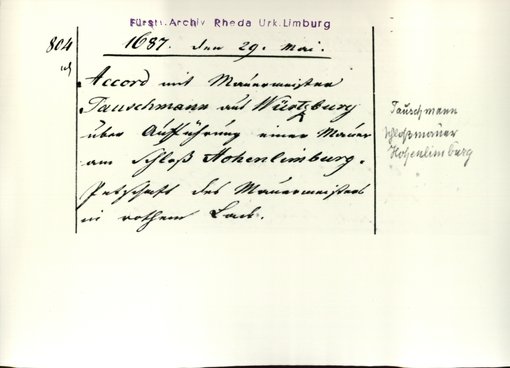 Fürstl. Archiv Rheda Urk. Limburg
804
1687. den 29. Mai.
Accord mit Mauermeister
Tauschmann aus Würtzburg
über Aufführung einer Mauer
am Schloß Hohenlimburg.
Petschaft des Mauermeisters
in rothem Lack.
Tauschmann
Schloßmauer
Hohenlimburg